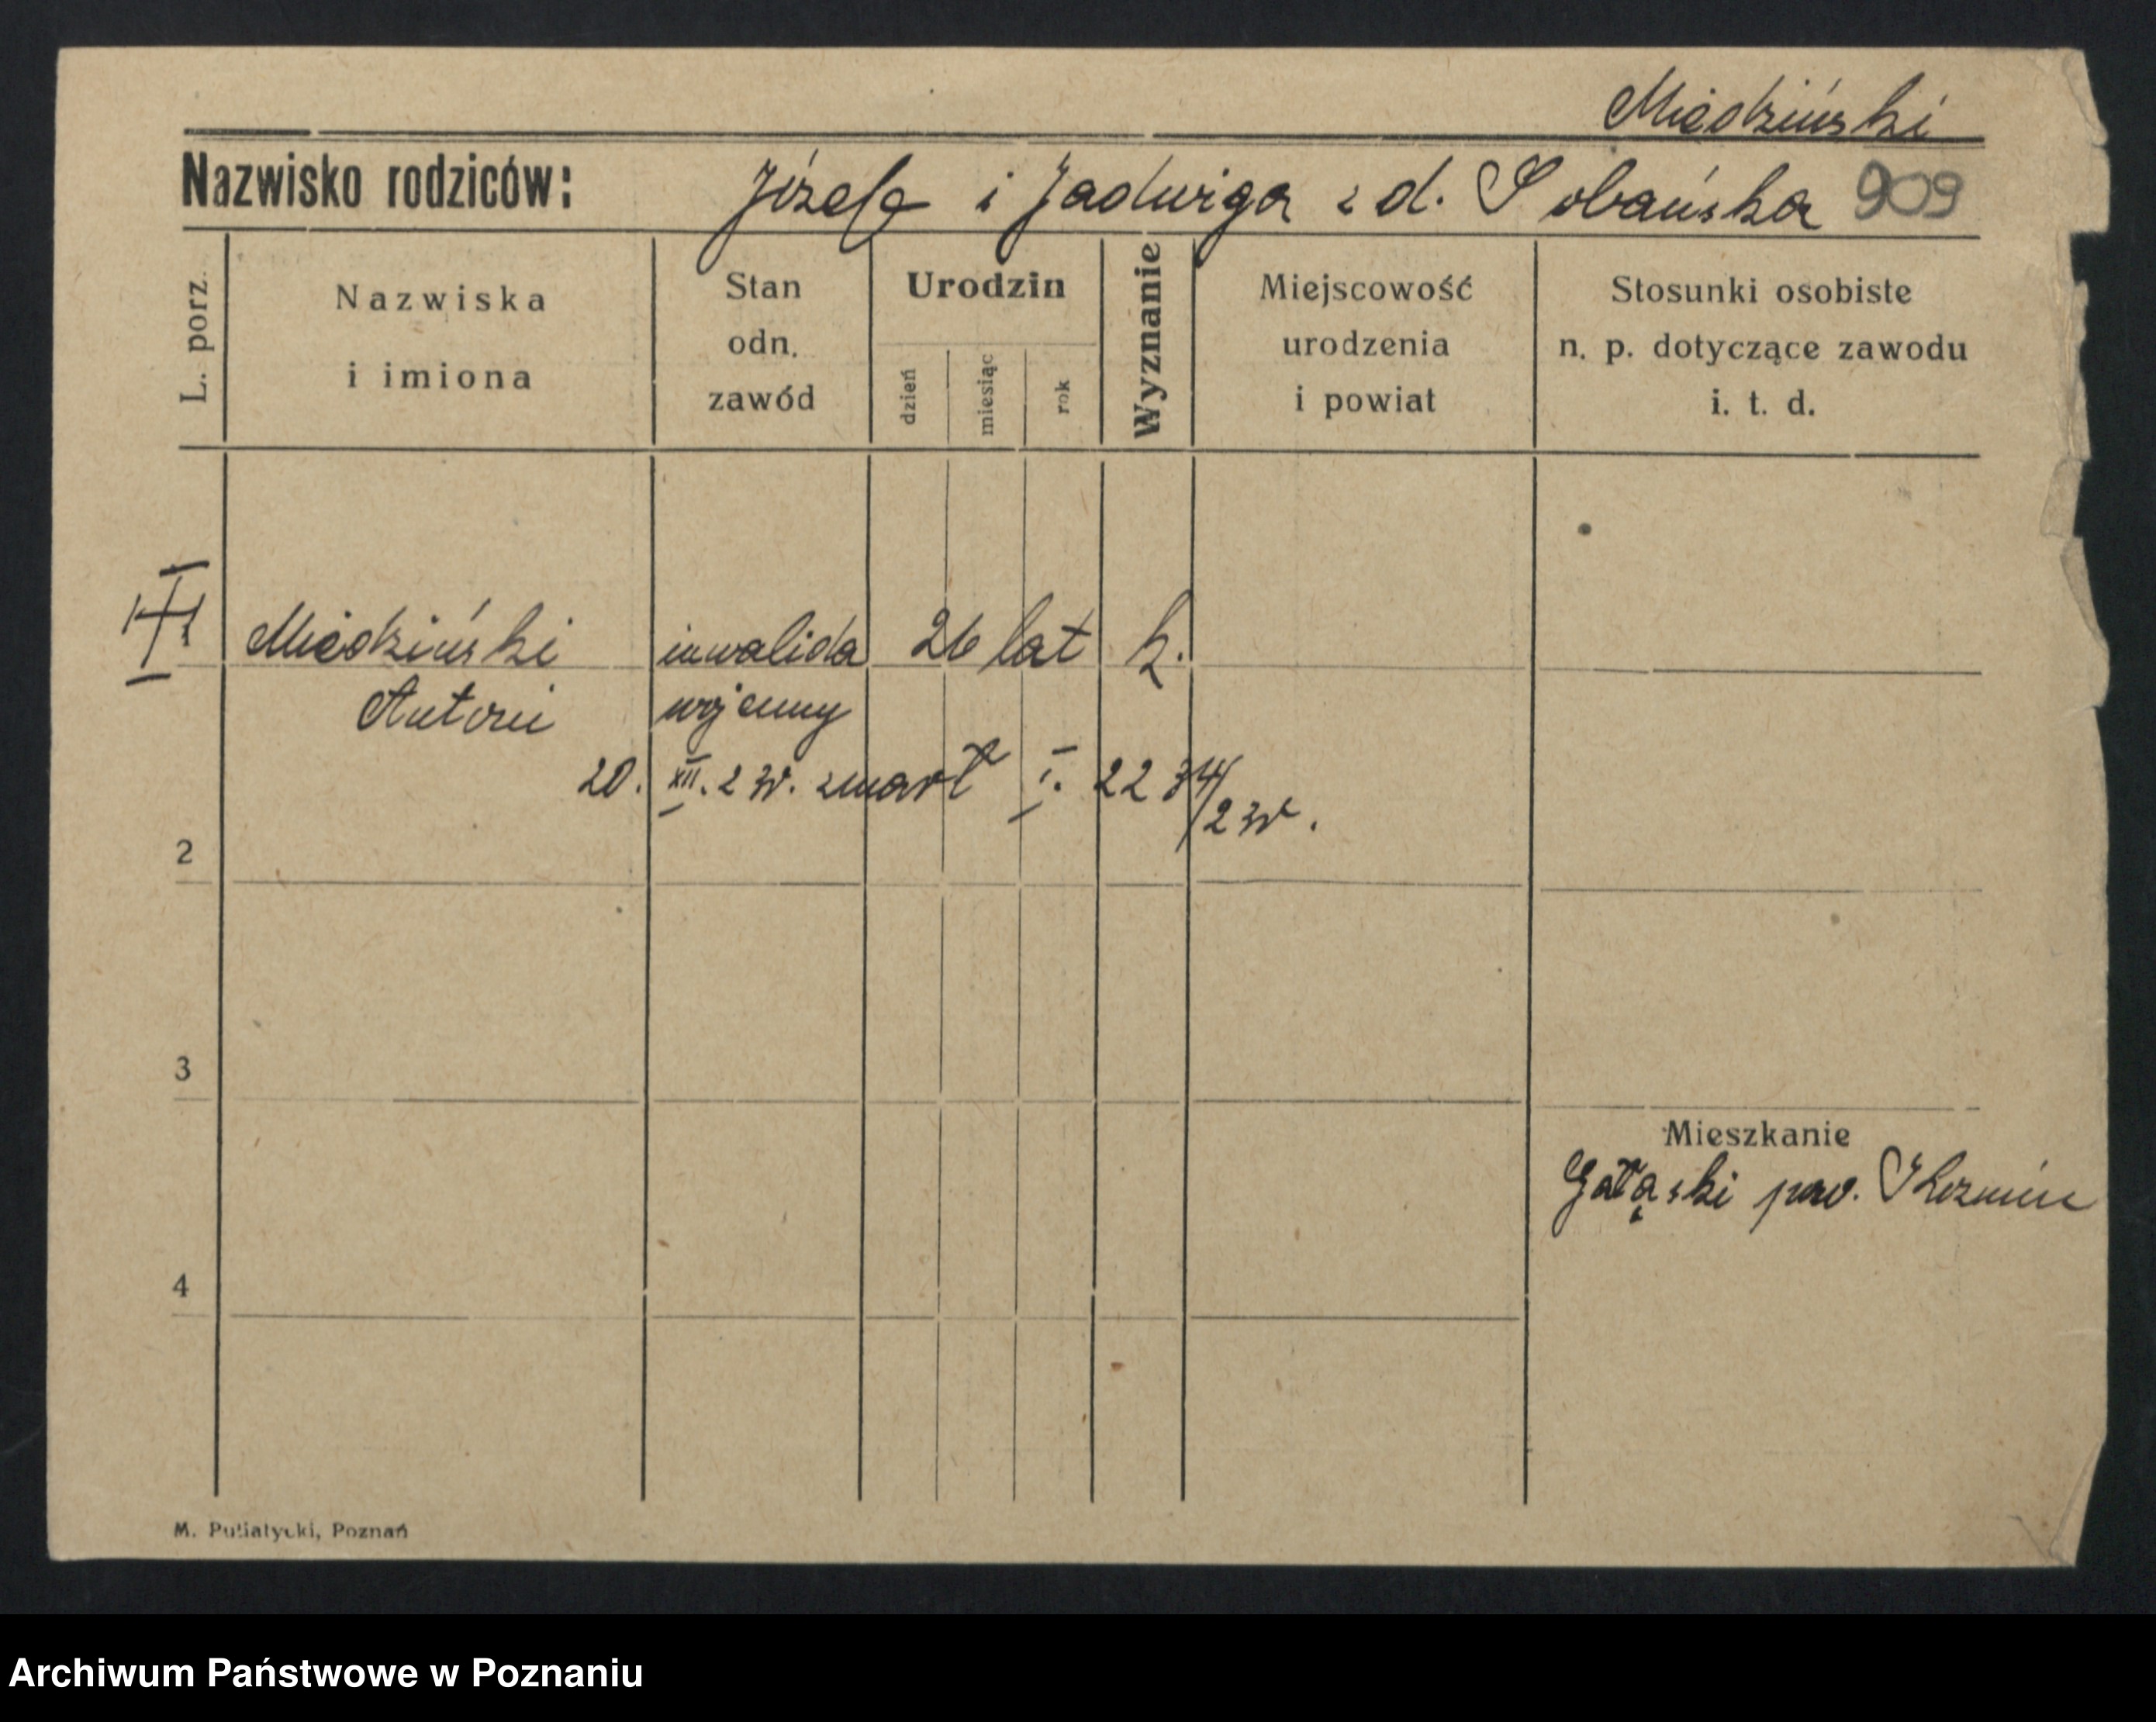 Miedziński
Nazwisko rodziców: Józef i Jadwiga z d. Sobańska 909
L. porz.
Nazwiska
i imiona
Stan
odn.
zawód
Urodzin
dzień
miesiąc
rok
Wyznanie
Miejscowość
urodzenia
i powiat
Stosunki osobiste
n. p. dotyczące zawodu
i. t. d.
Miedziński inwalida 26 lat k.
Antoni wojenny
20. XII. 2 zmarł I. 22 34/
2
2
3
Mieszkanie
pow.
4
M. Putiatycki, Poznań
Archiwum Państwowe w Poznaniu